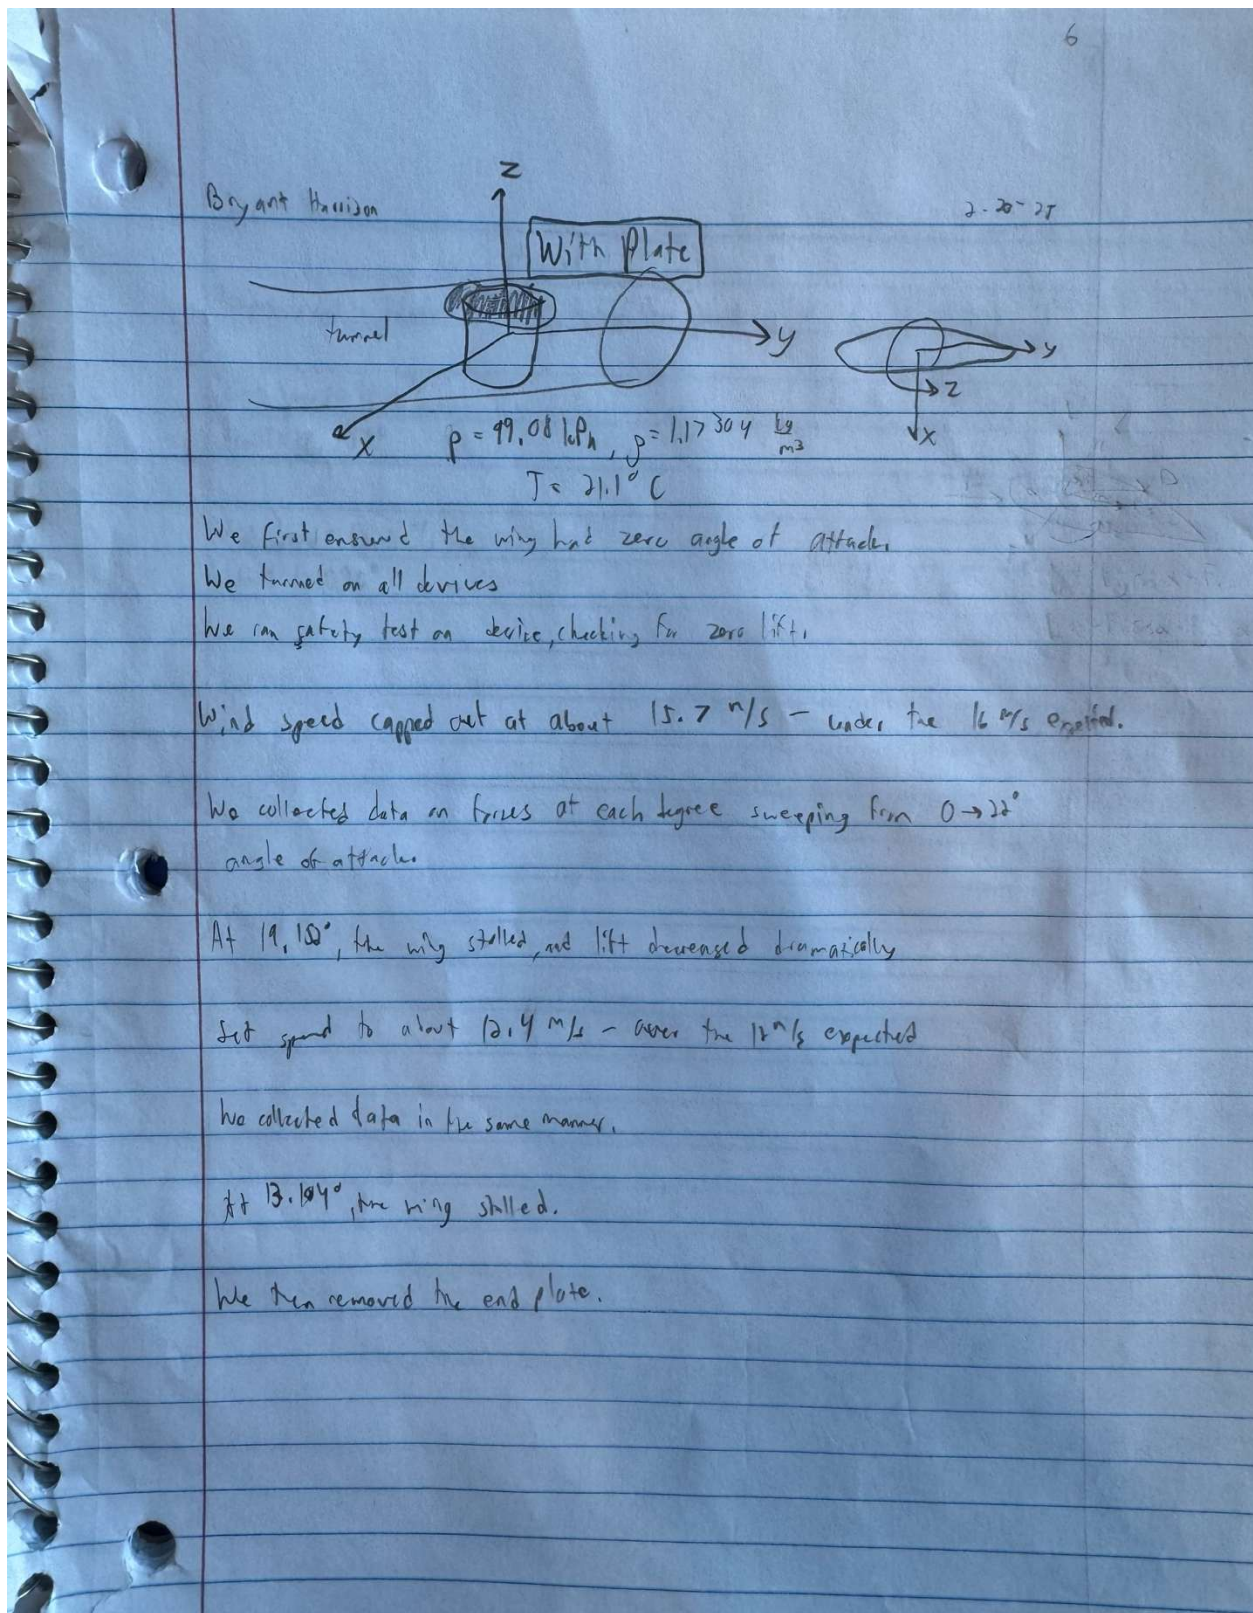 6
Bryant Harrison
2-20-25
Z
With Plate
tunnel
y
X
y
Z
X
P = 99.08 kPa, ρ = 1.17304 kg/m3
T = 21.1° C
We first ensured the wing had zero angle of attack.
We turned on all devices
We ran safety test on device, checking for zero lift.
Wind speed capped out at about 15.7 m/s - under the 16 m/s expected.
We collected data on forces at each degree sweeping from 0 → 22°
angle of attack.
At 19.152°, the wing stalled, and lift decreased dramatically
Set speed to about 12.4 m/s - over the 12 m/s expected
We collected data in the same manner.
At 13.104°, the wing stalled.
We then removed the end plate.